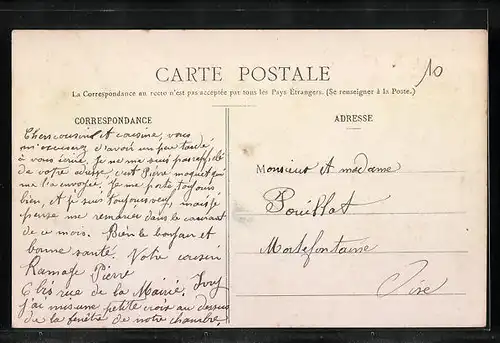 10
CARTE POSTALE
La Correspondance au recto n'est pas acceptée par tous les Pays Étrangers. (Se renseigner à la Poste.)
CORRESPONDANCE
Chers cousin et cousine, vous
m'excuserez d'avoir un peu tardé
à vous écrire, je ne me suis pas
de votre adresse, c'est Pierre moquet qui
me l'a envoyée, Je me porte toujours
bien, et je suis toujours mais je
pense me dans le courant
de ce mois. Bien le bonjour et
bonne santé. Votre cousin
Ramage Pierre
6 bis rue de la Mairie. Ivry
j'ai mis une petite croix au dessus
de la fenêtre de notre chambre.
ADRESSE
Monsieur et madame
Pouillot
Mortefontaine
Oise